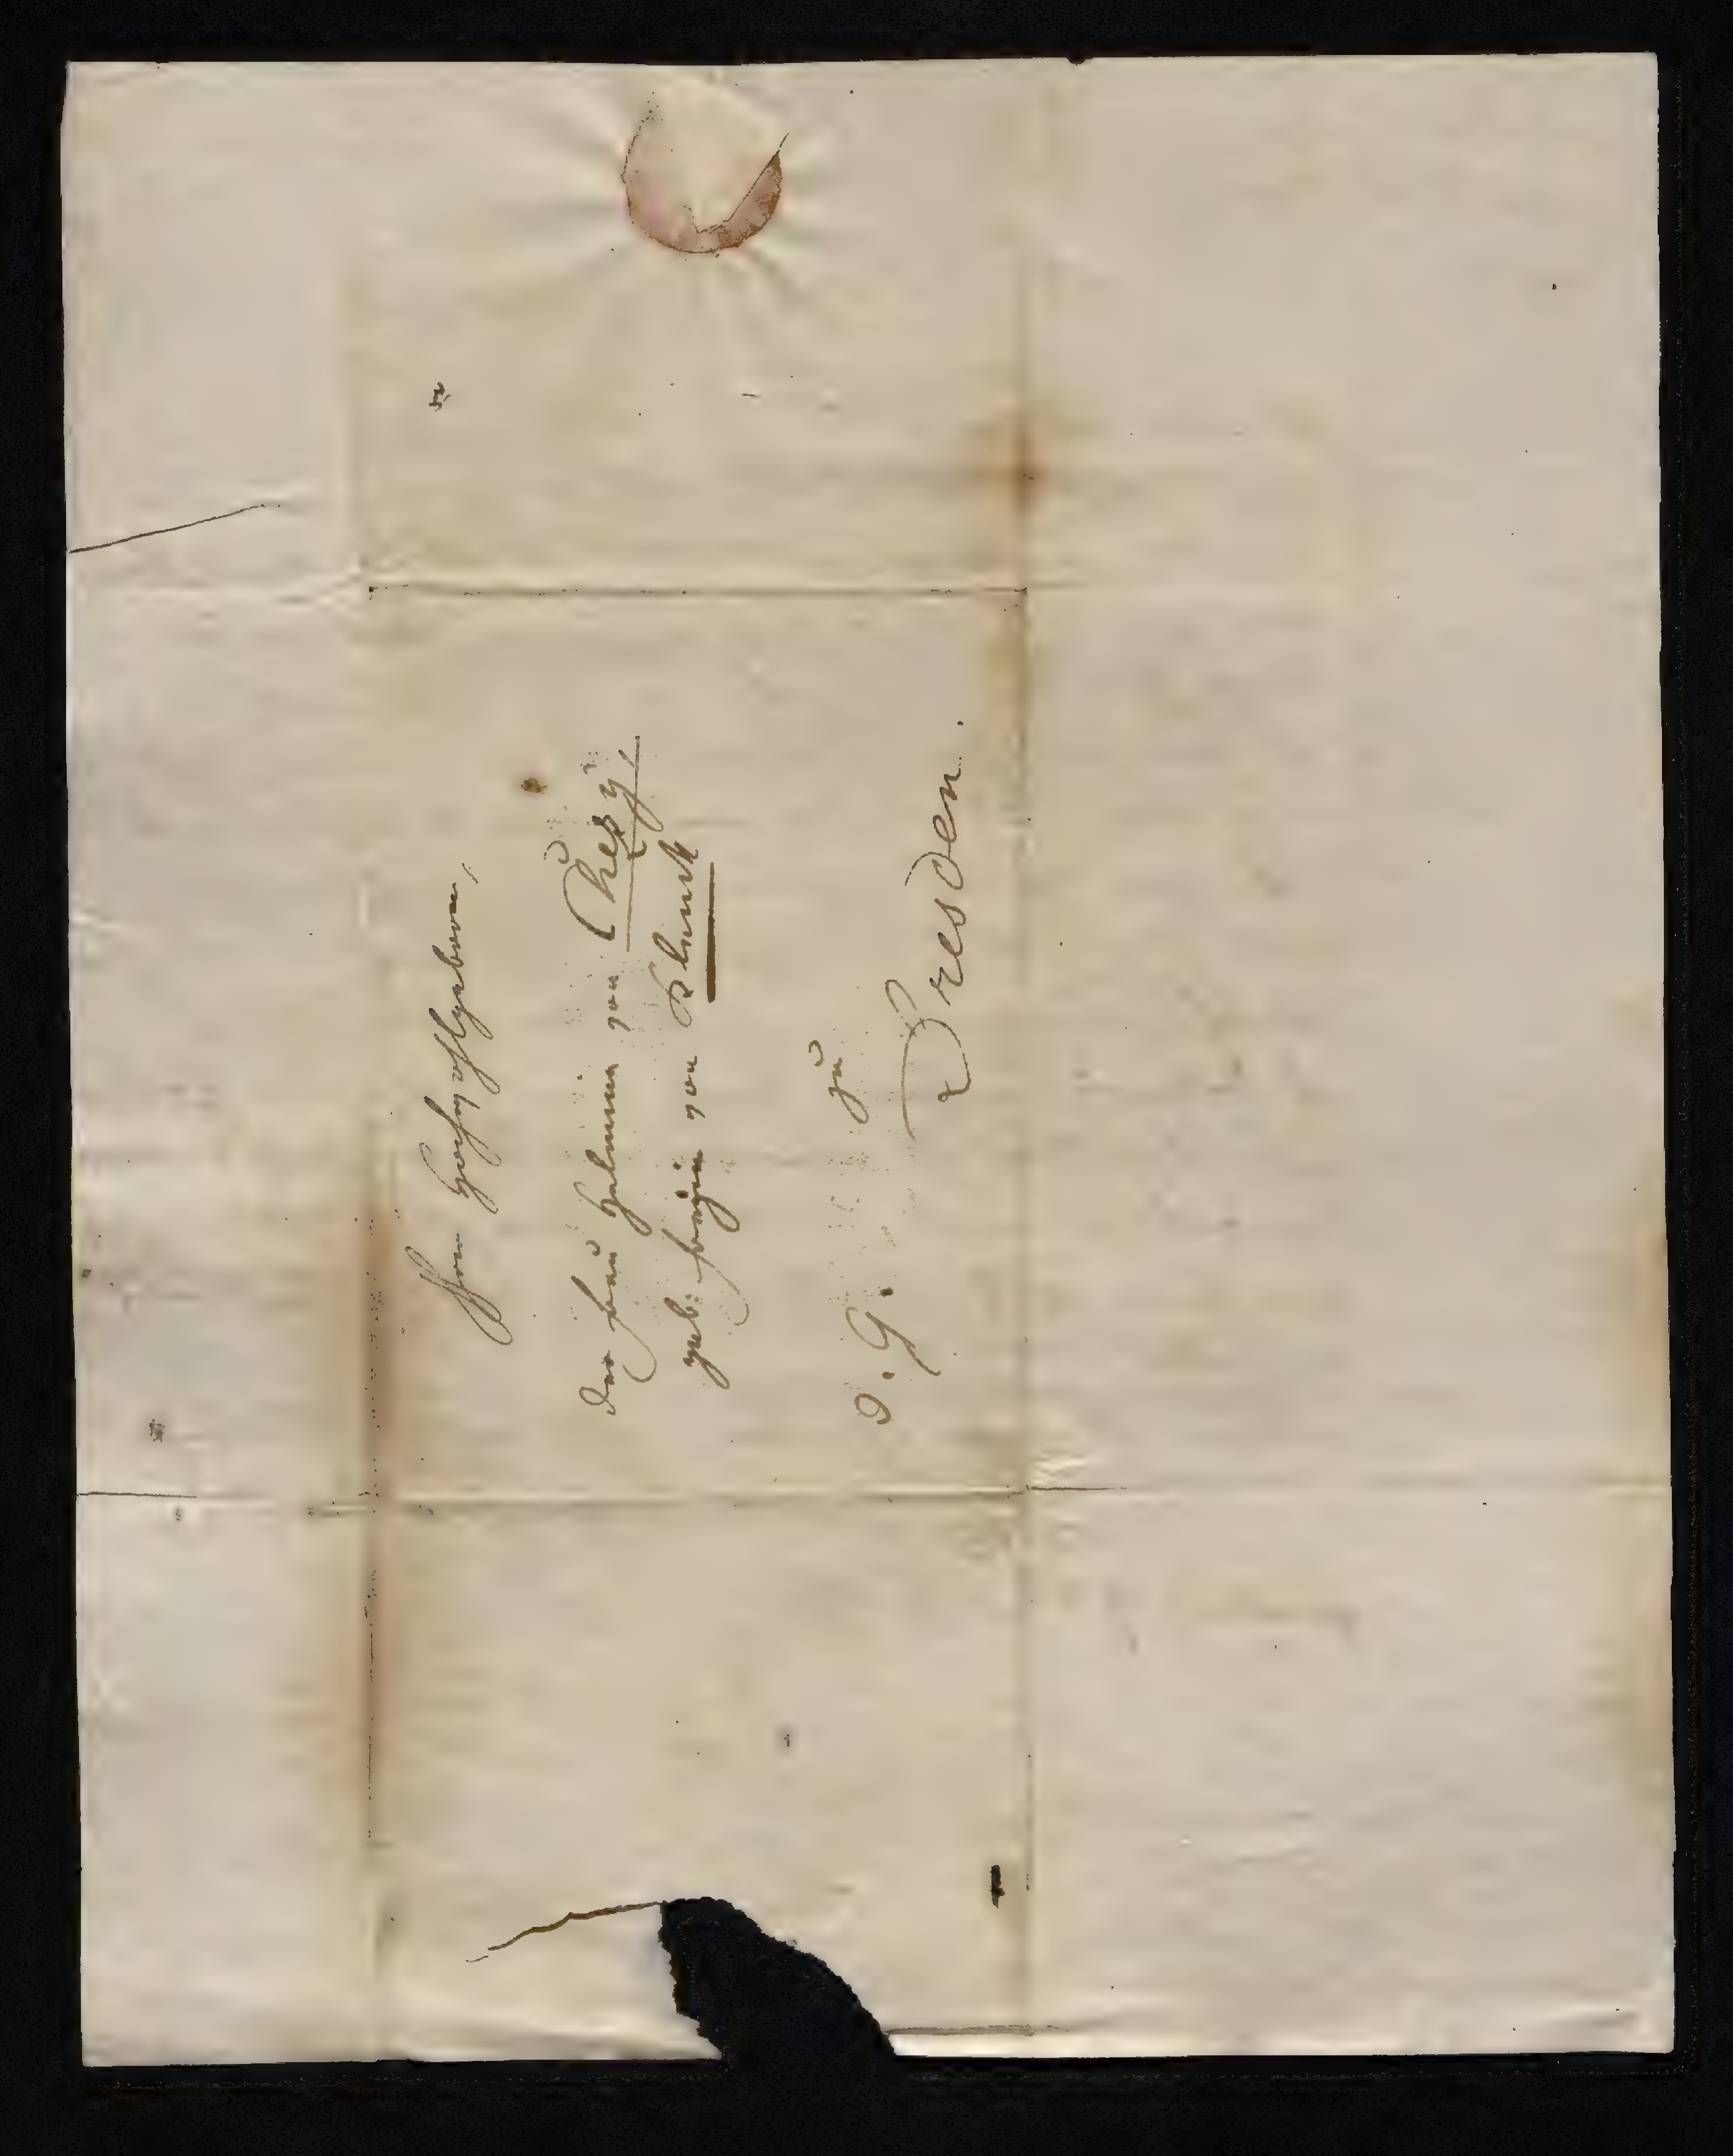 Ihro Hochwohlgeboren,
der Frau Helmina von Chezÿ,
geb: Freyin von Klenck
zu
d. G. Dresden.